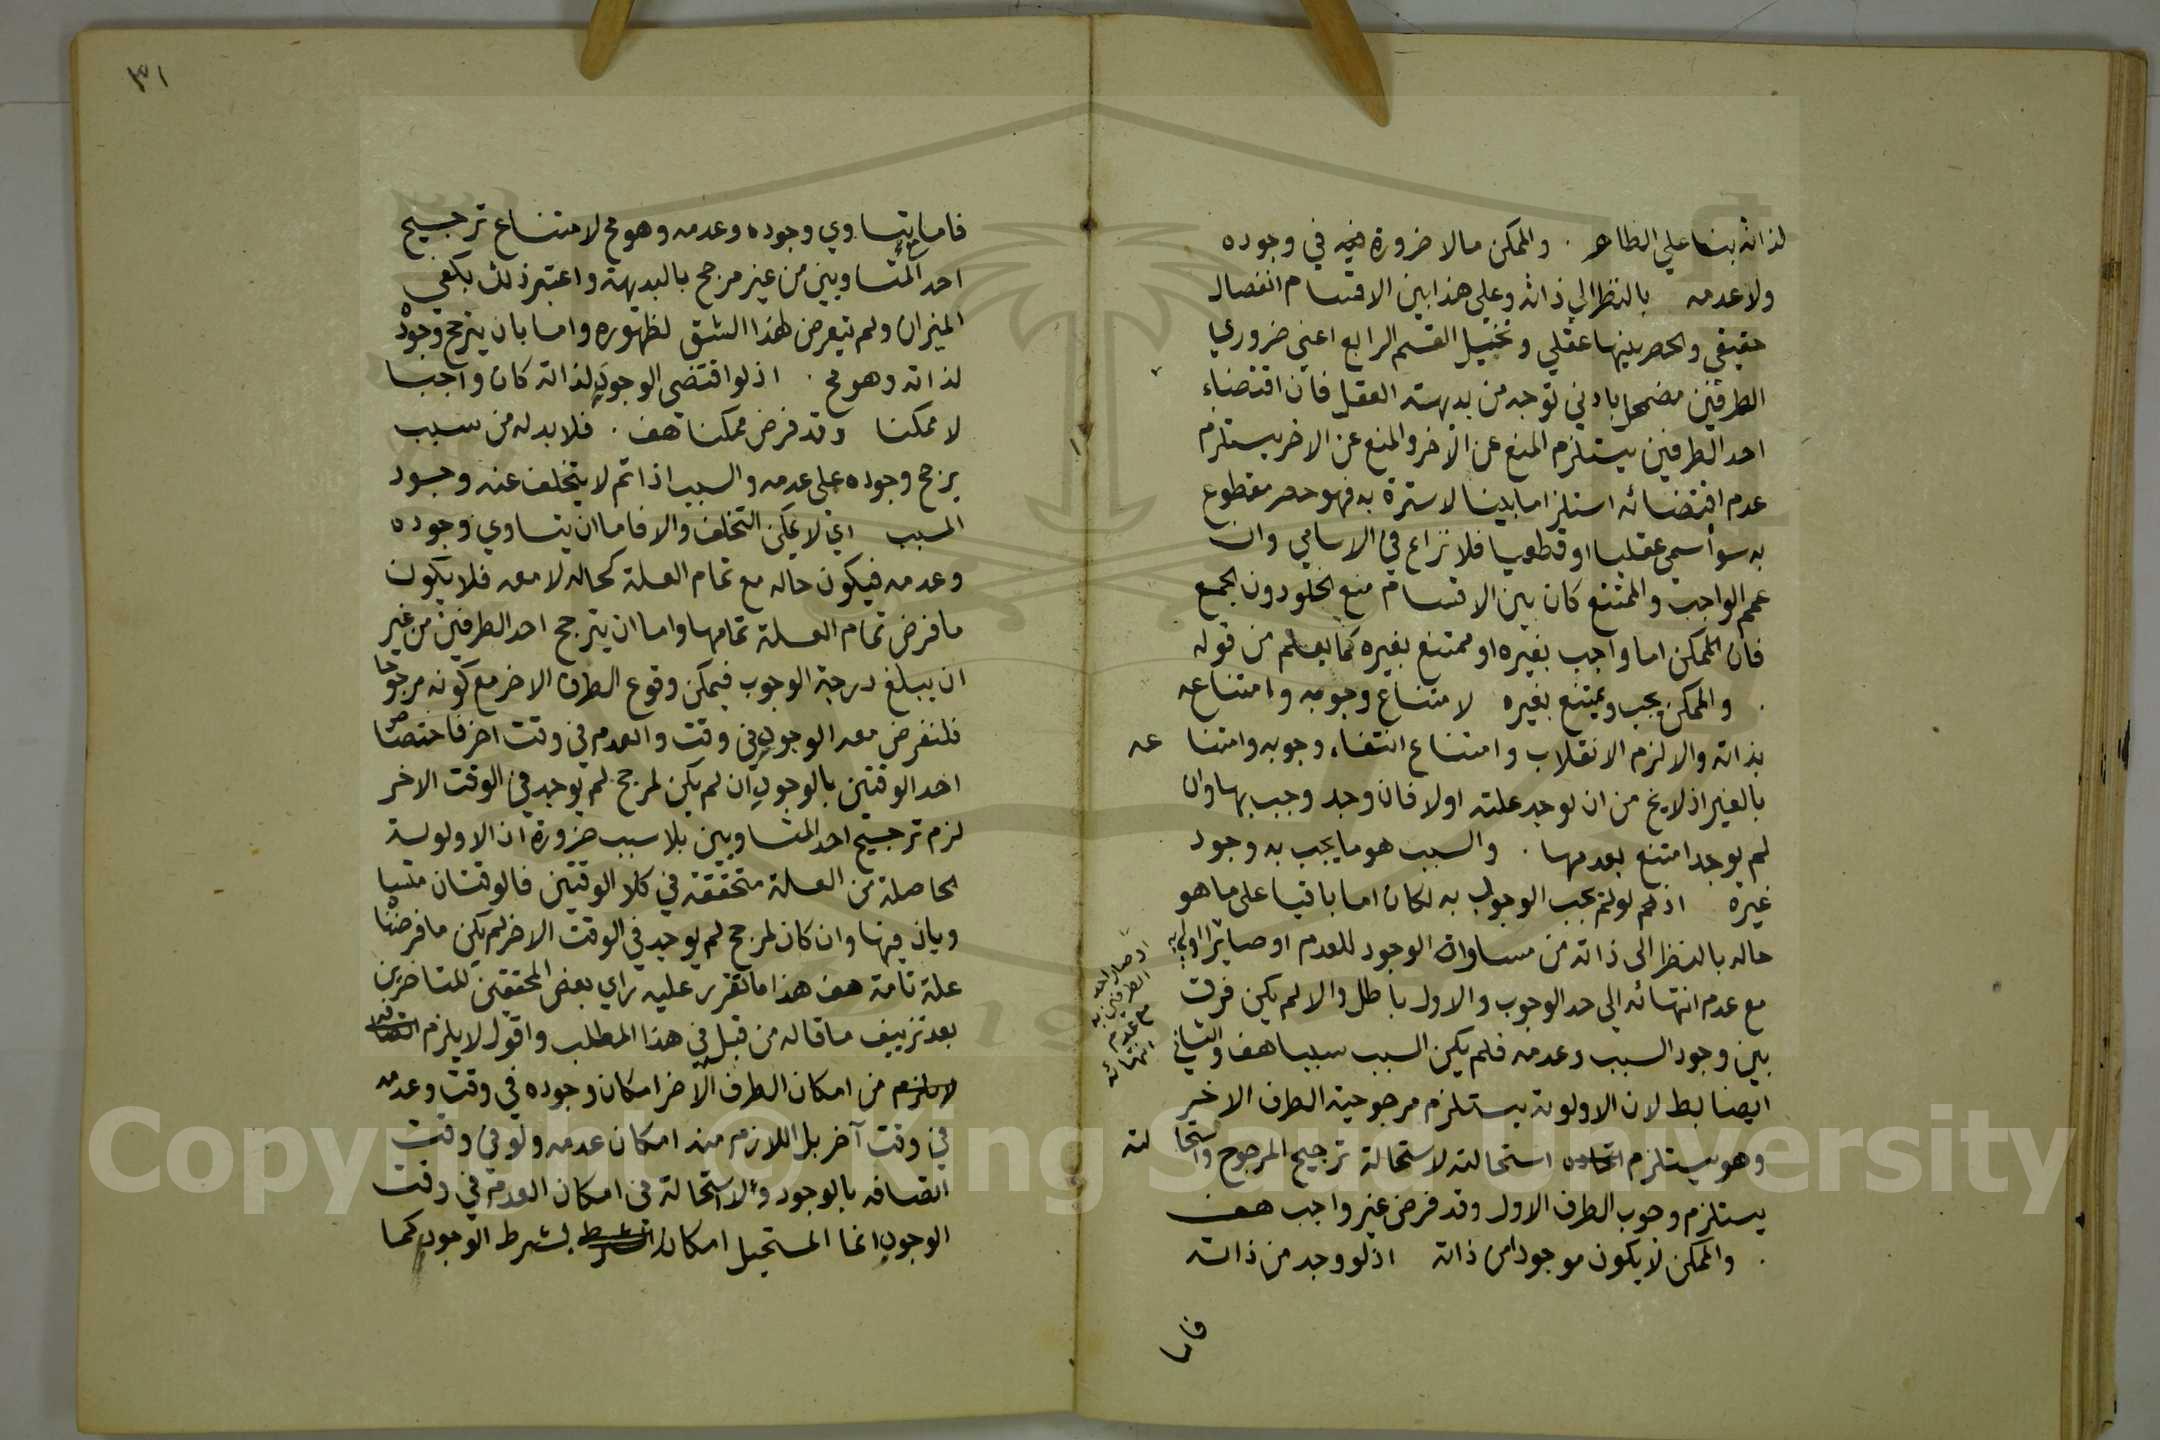 لذاته بنا علي الظاهر . والممكن ما لا ضرورة فيه في وجوده
ولا عدمه بالنظر الي ذاته وعلي هذا بين الاقسام انفصال
حقيقي والحصر بينها عقلي وتخيل القسم الرابع اعني ضروري
الطرفين مضمحل بادني توجه من بديهته العقل فان اقتضاء
احد الطرفين يستلزم المنع عن الآخر والمنع عن الاخر يستلزم
عدم اقتضائه استلزاما بينا لا سترة به فهو حصر مقطوع
به سوأ سمي عقليا او قطعيا فلا نزاع في الاسامي وان
عمم الواجب والممتنع كان بين الاقسام منع الخلو دون الجمع
فان الممكن اما واجب بغيره او ممتنع بغيره كما يعلم من قوله
. والممكن يجب ويمتنع بغيره لامتناع وجوبه وامتناعه
بذاته والا لزم الانقلاب وامتناع انتفاء وجوبه وامتنا عه
بالغير اذ لا يخ من ان توجد علته اولا فان وجد وجب بها وان
لم توجد امتنع بعدمها . والسبب هو ما يجب به وجود
غيره اذ لو لم يجب الوجود به لكان اما باقيا علي ما هو
حاله بالنظر الي ذاته من مساواة الوجود للعدم او صائرا اولي به
او صار احد
الطرفين به
مع عدم
انتهائه
مع عدم انتهائه الي حد الوجوب والاول باطل والا لم يكن فرق
بين وجود السبب وعدمه فلم يكن السبب سببا هف والثاني
ايضا بط لان الاولوية يستلزم مرجوحية الطرف الاخير
وهو يستلزم استحالته لاستحالة ترجيح المرجوح واستحا لته
يستلزم وجوب الطرف الاول وقد فرض غير واجب هف
. والممكن لا يكون موجودا من ذاته اذ لو وجد من ذاته
فاما
٣١
فاما بتساوي وجوده وعدمه وهو مح لامتناع ترجيح
احد المتساويين من غير مرجح بالبديهة واعتبر ذلك بكفتي
الميزان ولم يتعرض لهذا الشق لظهوره واما بان يترجح وجوده
لذاته وهو مح . اذ لو اقتضي الوجود لذاته كان واجبا
لا ممكنا وقد فرض ممكنا هف . فلا بد له من سبب
يرجح وجوده علي عدمه والسبب اذا تم لا يتخلف عنه وجود
المسبب اي لا يمكن التخلف والا فاما ان يتساوي وجوده
وعدمه فيكون حاله مع تمام العلة كحاله لا معه فلا يكون
ما فرض تمام العلة تمامها واما ان يترجح احد الطرفين من غير
ان يبلغ درجة الوجوب فيمكن وقوع الطرف الاخر مع كونه مرجوحا
فلنفرض معه الوجود في وقت والعدم في وقت اخر فاختصاص
احد الوقتين بالوجود ان لم يكن لمرجح لم يوجد في الوقت الاخر
لزم ترجيح احد المتساويين بلا سبب ضرورة ان الاولوية
الحاصلة من العلة متحققة في كلا الوقتين فالوقتان متسا
ويان فيها وان كان لمرجح لم يوجد في الوقت الاخر لم يكن ما فرضناه
علة تامة هف هذا ما تقرر عليه راي بعض المحققين للمتاخرين
بعد تزييف ما قاله من قبل في هذا المطلب واقول لا يلزم
من امكان الطرف الآخر امكان وجوده في وقت وعدمه
في وقت آخر بل اللازم منه امكان عدمه ولو في وقت
اتصافه بالوجود ولا استحالة في امكان العدم في وقت
الوجود انما المستحيل امكانه بشرط الوجود كما